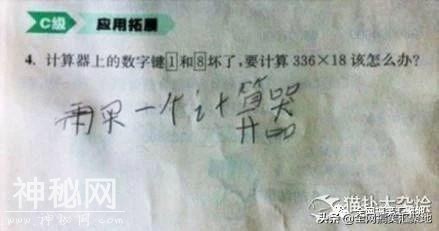 C级 应用拓展
4. 计算器上的数字键1和8坏了,要计算336×18该怎么办?
再买一个计算器
神秘网
猫扑大杂烩
头条